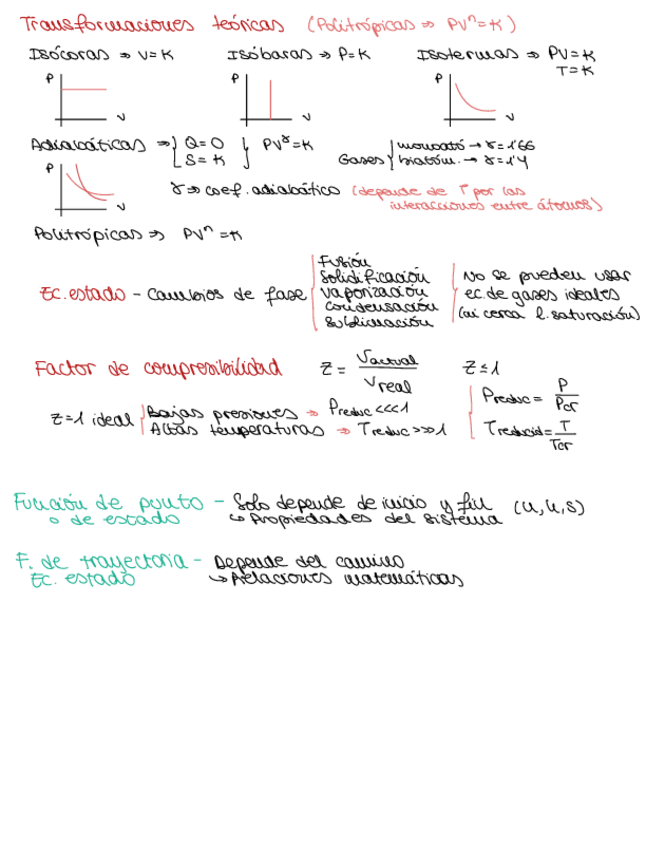 Transformaciones teóricas (Politrópicas ⇒ PVⁿ=K)
Isócoras ⇒ V=K Isóbaras ⇒ P=K Isotermas ⇒ PV=K
T=K
P V P V P V
Adiabáticas ⇒ { Q=0 S=K } PV^γ=K Gases { monoató → γ=1'66
biatóm. → γ=1'4
P V γ ⇒ coef. adiabático (depende de T por las
interacciones entre átomos)
Politrópicas ⇒ PVⁿ=K
Ec. estado - Cambios de fase
Fusión
Solidificación
Vaporización
Condensación
Sublimación
No se pueden usar
ec. de gases ideales
(ni cerca l. saturación)
Factor de compresibilidad Z = Vactual / Vreal Z≤1
Z=1 ideal { Bajas presiones ⇒ Preduc <<<1
Altas temperaturas ⇒ Treduc >>>1
Preduc = P / Pcr
Treducid = T / Tcr
Función de punto - Solo depende de inicio y fin (u,h,s)
o de estado ↳ Propiedades del sistema
F. de trayectoria - Depende del camino
Ec. estado ↳ Relaciones matemáticas